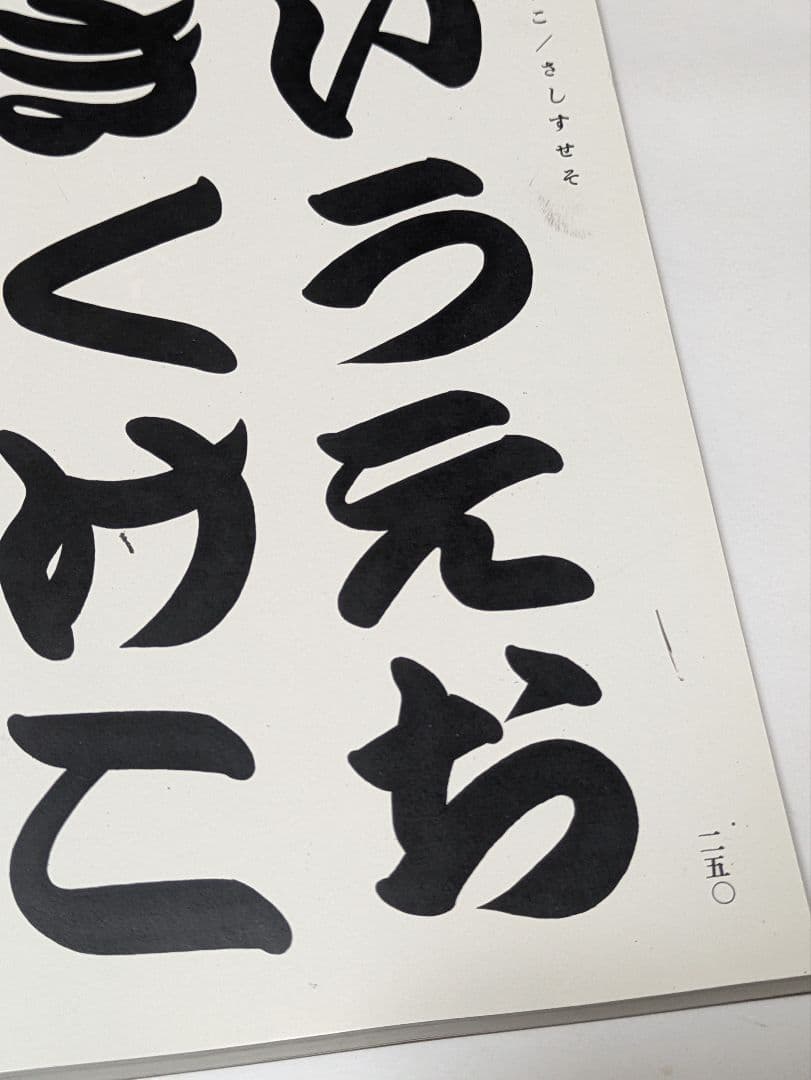 こ/さしすせそ
いうえお
きくけこ
二五〇